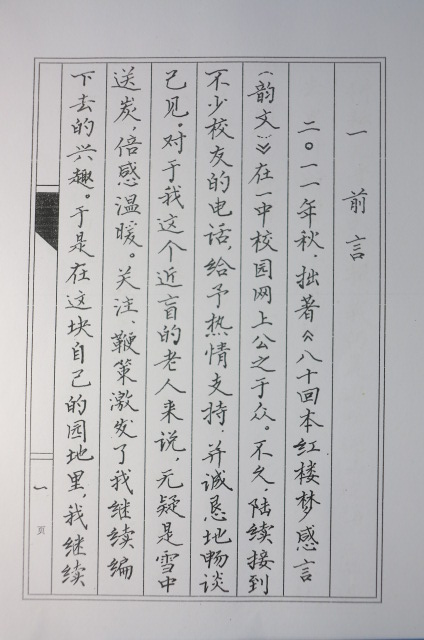 一 前言
二〇一一年秋，拙著《八十回本红楼梦感言
（韵文）》在一中校园网上公之于众。不久，陆续接到
不少校友的电话，给予热情支持，并诚恳地畅谈
己见。对于我这个近盲的老人来说，无疑是雪中
送炭，倍感温暖。关注、鞭策激发了我继续编
下去的兴趣。于是在这块自己的园地里，我继续
一
页